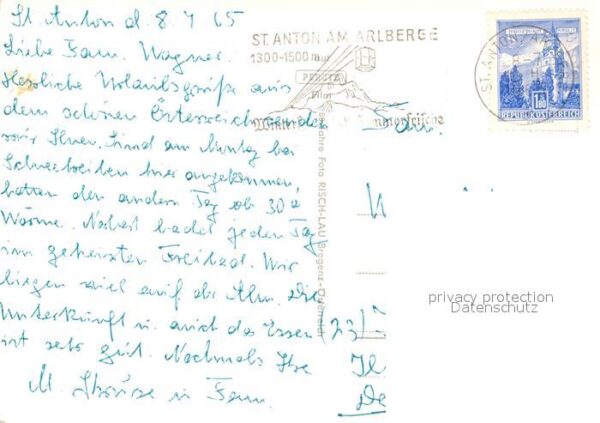 St. Anton d. 8.7.65
Liebe Fam. Wagner.
Herzliche Urlaubsgrüße aus
dem schönen Österreich senden
wir Ihnen. Sind am Montag bei
Schneetreiben hier angekommen,
hatten den andern Tag ob 30°
Wärme. Norbert badet jeden Tag
im geheizten Freibad. Wir
liegen viel auf der Alm. Die
Unterkunft u. auch das Essen
ist sehr gut. Nochmals Ihre
M. u. Fam.
ST. ANTON AM ARLBERGE
1300-1500 m
PERUTZ
Film
Winter Sommerfrische
ST. ANTON
REPUBLIK ÖSTERREICH
Foto RISCH-LAU, Bregenz-Österreich
privacy protection
Datenschutz